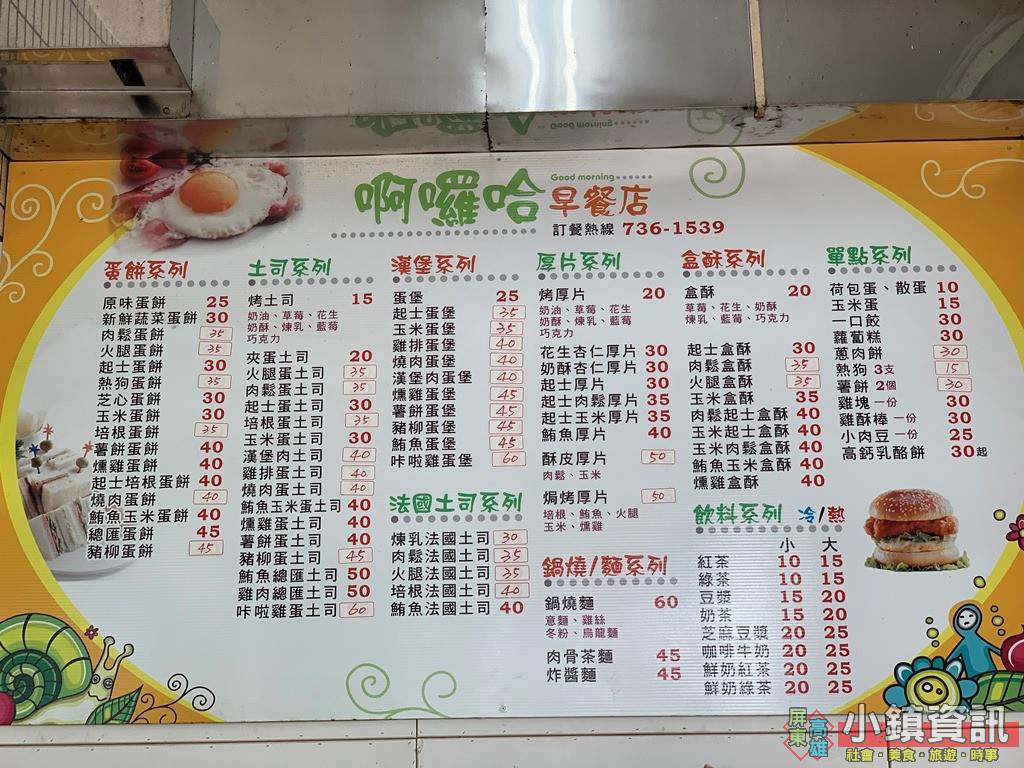 Good morning
啊囉哈早餐店
訂餐熱線 736-1539
蛋餅系列
原味蛋餅 25
新鮮蔬菜蛋餅 30
肉鬆蛋餅 35
火腿蛋餅 35
起士蛋餅 30
熱狗蛋餅 35
芝心蛋餅 30
玉米蛋餅 30
培根蛋餅 35
薯餅蛋餅 40
燻雞蛋餅 40
起士培根蛋餅 40
燒肉蛋餅 40
鮪魚玉米蛋餅 40
總匯蛋餅 45
豬柳蛋餅 45
土司系列
烤土司 15
奶油、草莓、花生
奶酥、煉乳、藍莓
巧克力
夾蛋土司 20
火腿蛋土司 35
肉鬆蛋土司 35
起士蛋土司 30
培根蛋土司 35
玉米蛋土司 30
漢堡肉土司 40
雞排蛋土司 40
燒肉蛋土司 40
鮪魚玉米蛋土司 40
燻雞蛋土司 40
薯餅蛋土司 40
豬柳蛋土司 45
鮪魚總匯土司 50
雞肉總匯土司 50
咔啦雞蛋土司 60
漢堡系列
蛋堡 25
起士蛋堡 35
玉米蛋堡 35
雞排蛋堡 40
燒肉蛋堡 40
漢堡肉蛋堡 40
燻雞蛋堡 45
薯餅蛋堡 45
豬柳蛋堡 45
鮪魚蛋堡 45
咔啦雞蛋堡 60
法國土司系列
煉乳法國土司 30
肉鬆法國土司 35
火腿法國土司 35
培根法國土司 40
鮪魚法國土司 40
厚片系列
烤厚片 20
奶油、草莓、花生
奶酥、煉乳、藍莓
巧克力
花生杏仁厚片 30
奶酥杏仁厚片 30
起士厚片 30
起士肉鬆厚片 35
起士玉米厚片 35
鮪魚厚片 40
酥皮厚片 50
肉鬆、玉米
焗烤厚片 50
培根、鮪魚、火腿
玉米、燻雞
鍋燒/麵系列
鍋燒麵 60
意麵、雞絲
冬粉、烏龍麵
肉骨茶麵 45
炸醬麵 45
盒酥系列
盒酥 20
草莓、花生、奶酥
煉乳、藍莓、巧克力
起士盒酥 30
肉鬆盒酥 35
火腿盒酥 35
玉米盒酥 35
肉鬆起士盒酥 40
玉米起士盒酥 40
玉米肉鬆盒酥 40
鮪魚玉米盒酥 40
燻雞盒酥 40
飲料系列 冷/熱
小 大
紅茶 10 15
綠茶 10 15
豆漿 15 20
奶茶 15 20
芝麻豆漿 20 25
咖啡牛奶 20 25
鮮奶紅茶 20 25
鮮奶綠茶 20 25
單點系列
荷包蛋、散蛋 10
玉米蛋 15
一口餃 30
蘿蔔糕 30
蔥肉餅 30
熱狗 3支 15
薯餅 2個 30
雞塊 一份 30
雞酥棒 一份 30
小肉豆 一份 25
高鈣乳酪餅 30起
屏東 高雄 小鎮資訊
社會•美食•旅遊•時事